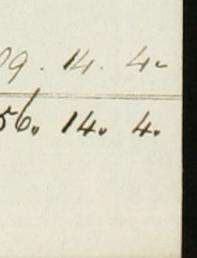 09. 14. 4.
56. 14. 4.